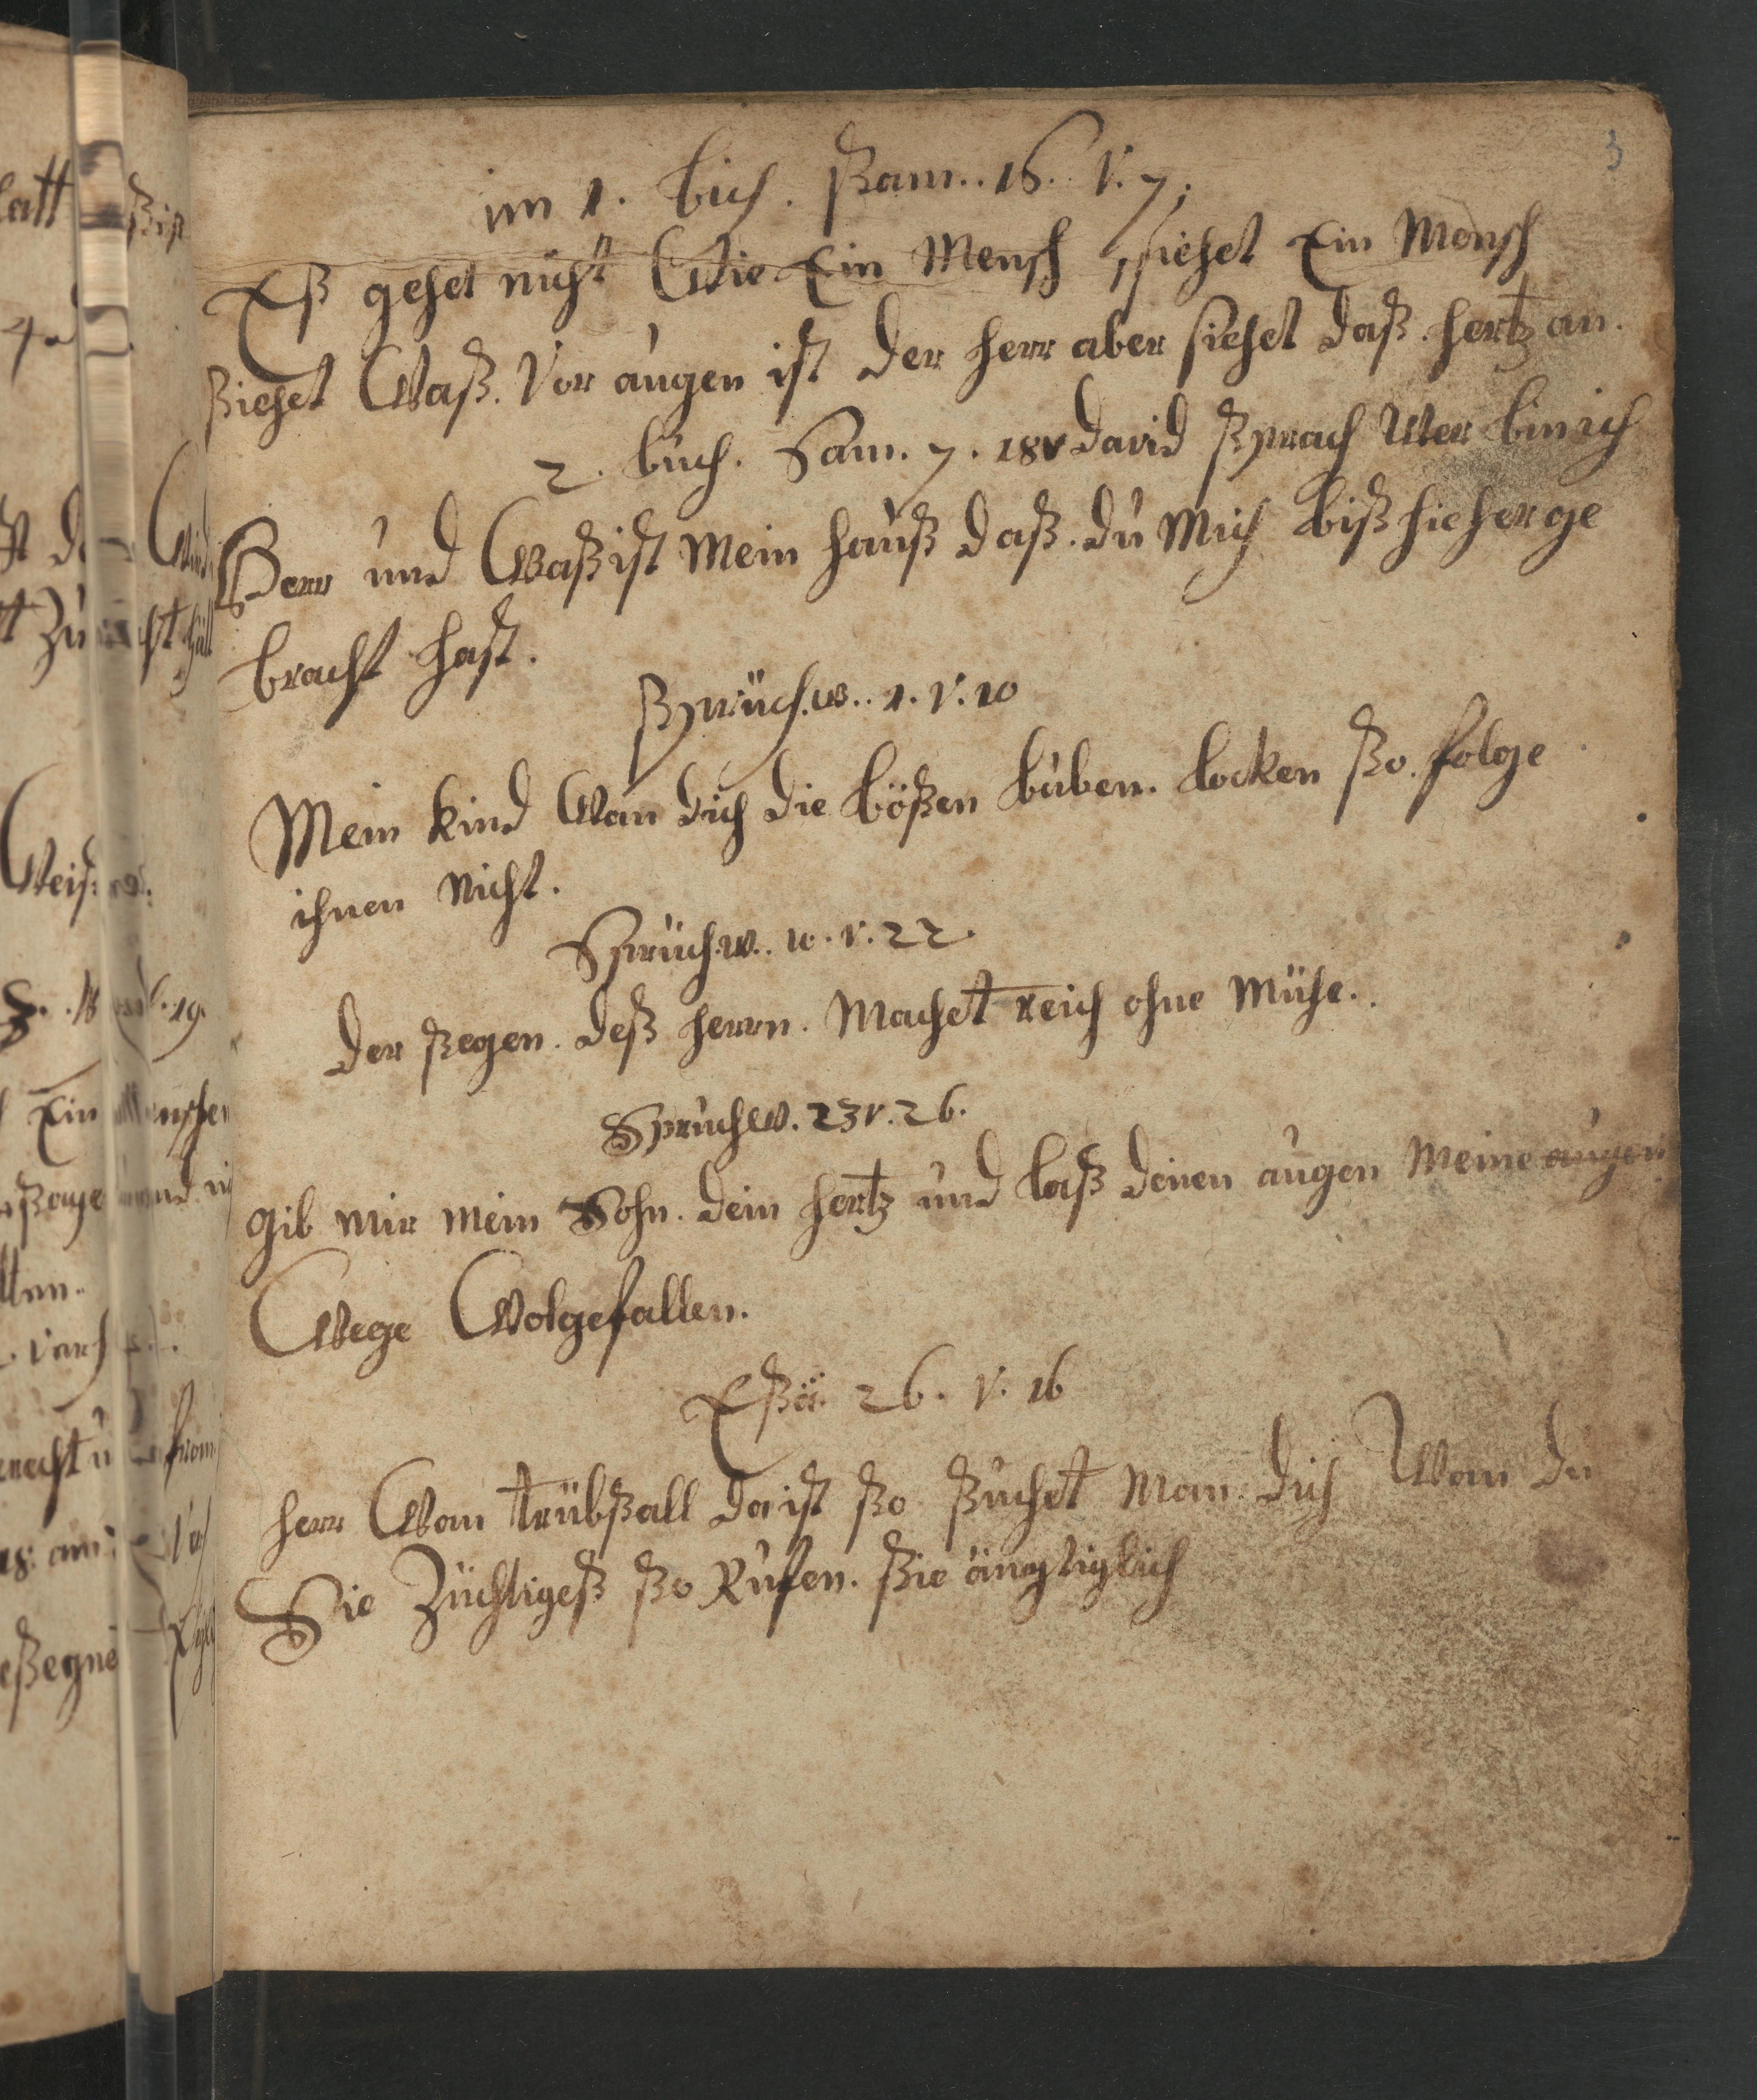 3
im 1. buch. ßam.. 16. V. 7.
Eß gehet nicht Wie Ein Mensch siehet Ein Mensch
ßiehet Waß. Vor augen ist der herr aber siehet daß. hertz an.
2. buch. Sam. 7. 18 v david ßprach Wer bin ich
Herr und Waß ist Mein hauß daß. du Mich biß hieher ge
bracht hast.
ßprüch.w.. 1. V. 10
Mein kind Wan dich die bößen buben. locken ßo. folge
ihnen nicht.
Sprüch.w.. 10. v. 22.
der ßegen. deß herrn. Machet reich ohne Mühe..
Spruchw. 23 v. 26.
gib mir mein Sohn. dein hertz und laß deinen augen Meine augen
Wege Wolgefallen.
Eßä. 26. V. 16
herr Wan trübßall da ist ßo ßuchet Man dich Wan du
Sie Züchtigeß ßo Rufen. ßie ängstiglich